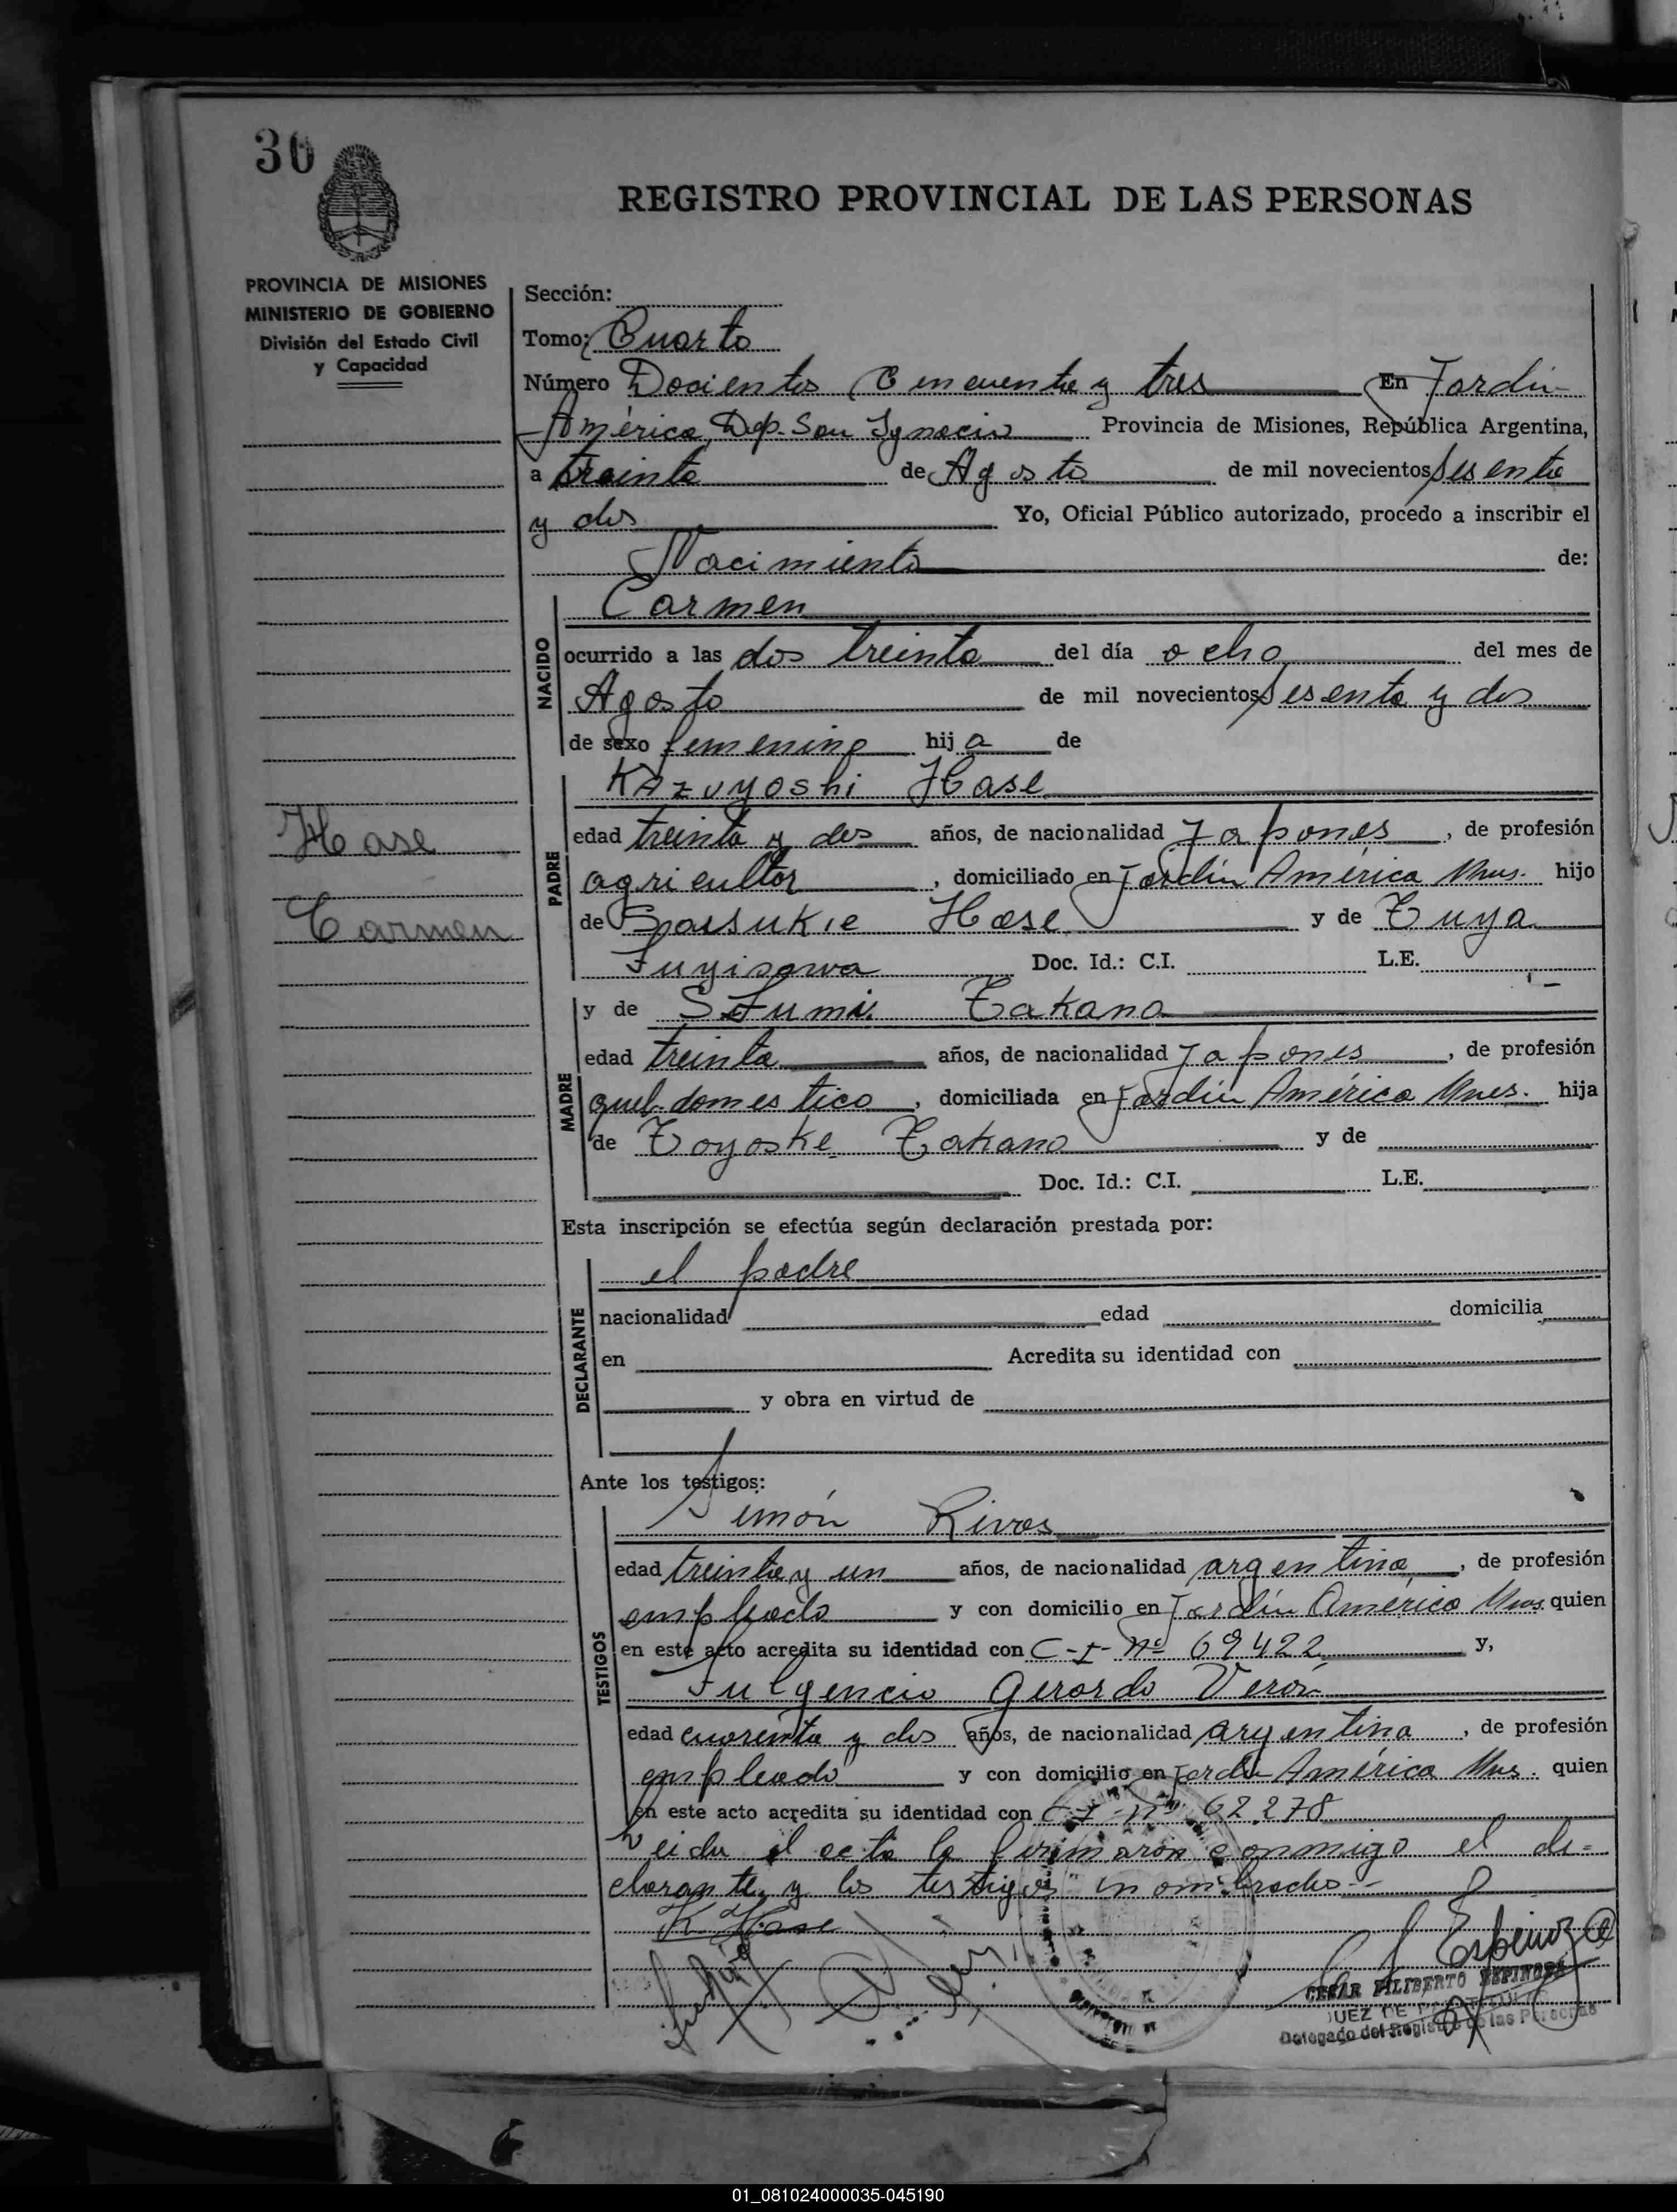 30
REGISTRO PROVINCIAL DE LAS PERSONAS
PROVINCIA DE MISIONES
MINISTERIO DE GOBIERNO
División del Estado Civil
y Capacidad
Sección:
Tomo: Cuarto
Número Docientos Cincuenta y tres En Jardín
América, Dep. San Ignacio Provincia de Misiones, República Argentina,
a treinta de Agosto de mil novecientos sesenta
y dos Yo, Oficial Público autorizado, procedo a inscribir el
Nacimiento de:
NACIDO
Carmen
ocurrido a las dos treinta del día ocho del mes de
Agosto de mil novecientos sesenta y dos
de sexo femenino hija de
PADRE
Kazuyoshi Hase
edad treinta y dos años, de nacionalidad Japonés, de profesión
agricultor, domiciliado en Jardín América Mnes. hijo
de Hase y de Tuya
Fuyisawa Doc. Id.: C.I. L.E.
Hase
Carmen
MADRE
y de Takano
edad treinta años, de nacionalidad Japonés, de profesión
quel. domestico, domiciliada en Jardín América Mnes. hija
de Toyoske Takano y de
Doc. Id.: C.I. L.E.
Esta inscripción se efectúa según declaración prestada por:
DECLARANTE
el padre
nacionalidad edad domicilia
en Acredita su identidad con
y obra en virtud de
Ante los testigos:
TESTIGOS
Simón Rivas
edad treinta y un años, de nacionalidad argentina, de profesión
empleado y con domicilio en Jardín América Mnes. quien
en este acto acredita su identidad con C-I- Nº 69422 y,
Fulgencio Gerardo Verón
edad cuarenta y dos años, de nacionalidad argentina, de profesión
empleado y con domicilio en Jardín América Mnes. quien
en este acto acredita su identidad con C-I-Nº 62278
Leida el acta la firmaron conmigo el de=
clarante, y los testigos nombrados--
K Hase
Espinoza
CESAR FILIBERTO ESPINOZA
JUEZ DE PAZ TITULAR
Delegado del Registro de las Personas
01_081024000035-045190